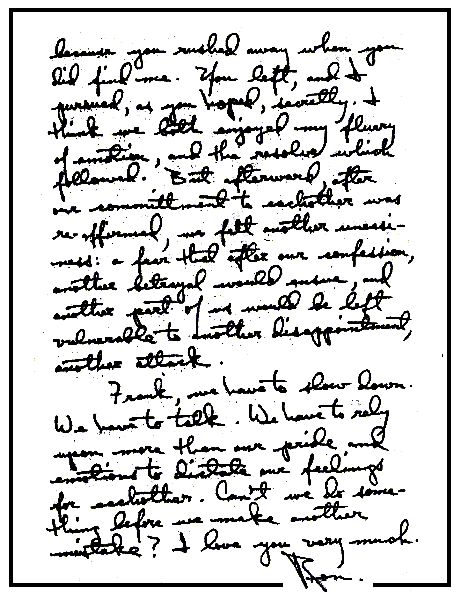 because you rushed away when you
did find me. You left, and I
pursued, as you hoped, secretly. I
think we both enjoyed my flurry
of emotion, and the resolve which
followed. But afterward, after
our committment to eachother was
re-affirmed, we felt another uneasi-
ness: a fear that after our confession,
another betrayal would ensue, and
another part of us would be left
vulnerable to another disappointment,
another attack.
Frank, we have to slow down.
We have to talk. We have to rely
upon more than our pride and
emotions to dictate our feelings
for eachother. Can't we do some-
thing before we make another
mistake? I love you very much.